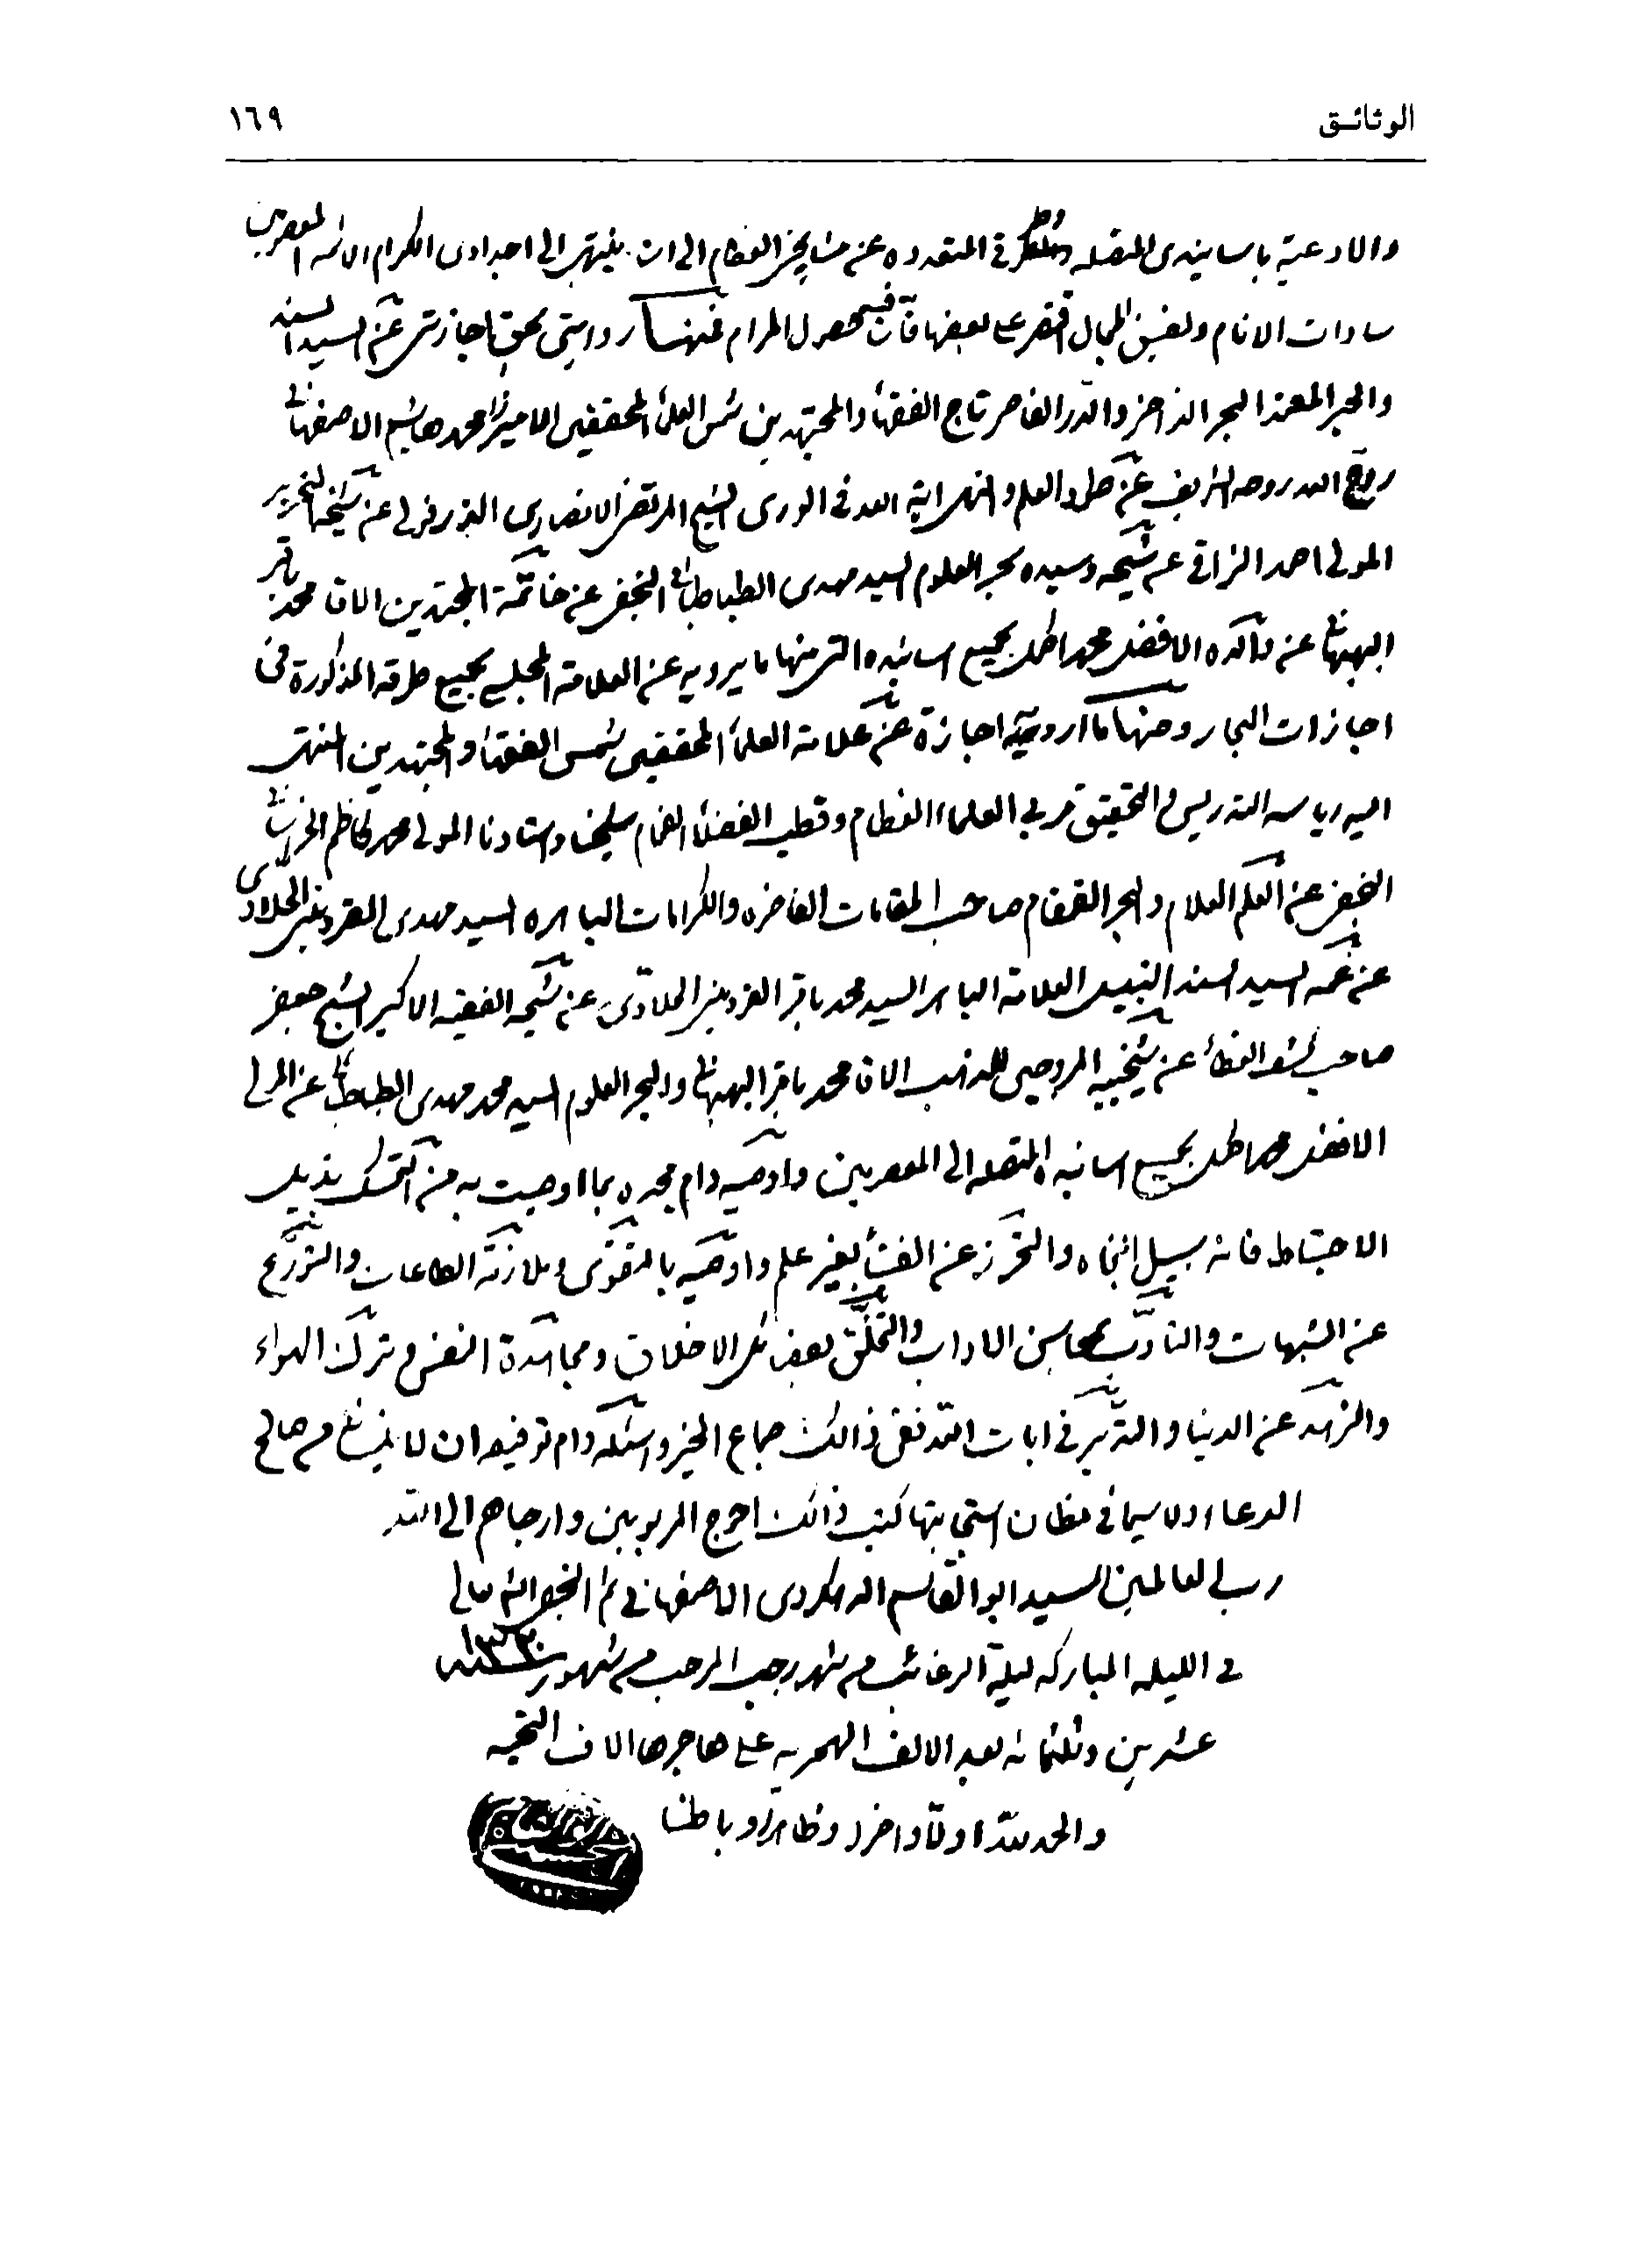 الوثائـق ١٦٩
والادعية باسانيدى المتصله وطرقى المتعدده عن مشايخى العظام الى ان ينتهى الى اجدادى الكرام الائمه المعصومين
سادات الانام ولضيق المجال اقتصر على بعضها فان فيه حصول المرام فمنها روايتى بحق اجازتى عن السيد السند
والحبر المعتمد البحر الزاخر والدر الفاخر تاج الفقهاء والمجتهدين شمس العلماء المحققين الاميرزا محمد هاشم الاصفهانى
روح الله روحه الشريف عن طود العلم والنهى اية الله فى الورى الشيخ المرتضى الانصارى الدزفولى عن شيخه النحرير
المولى احمد النراقى عن شيخه وسيده بحر العلوم السيد مهدى الطباطبائى النجفى عن خاتمة المجتهدين الاقا محمد باقر
البهبهانى عن والده الافضل محمد اكمل بجميع اسانيده التى منها ما يرويه عن العلامة المجلسى بجميع طرقه المذكورة فى
اجازات البحار ومنها ما ارويه اجازة عن علامة العلماء المحققين شمس الفقهاء والمجتهدين المنتهى
اليه رياسه التدريس والتحقيق مربى العلماء العظام وقطب الفضلاء الفخام شيخنا واستادنا المولى محمد كاظم الخراسانى
النجفى عن العلم العلام والبحر القمقام صاحب المقامات الفاخره والكرامات الباهره السيد مهدى القزوينى الحلاوى
عن عمه السيد السند النبيل العلامة الباهر السيد محمد باقر القزوينى الحلاوى عن شيخه الفقيه الاكبر الشيخ جعفر
صاحب كشف الغطاء عن شيخيه المروجين للمذهب الاقا محمد باقر البهبهانى والبحر العلوم السيد محمد مهدى الطباطبائى عن المولى
الافضل محمد اكمل بجميع اسانيده المتصله الى المعصومين واوصيه دام مجده بما اوصيت به من التمسك بذيل
الاحتياط فانه سبيل النجاه والتحرز عن الفتياء بغير علم واوصيه بالتقوى وملازمة الطاعات والتورع
عن الشبهات والتادب بمحاسن الاداب والتخلق بفضائل الاخلاق ومجاهدة النفس وترك الهواء
والزهد عن الدنيا والتدبر فى ايات الله ففى ذالك جماع الخير واسئله دام توفيقه ان لا ينسانى من صالح
الدعاء ولاسيما فى مظان استجابتها كتب ذالك احوج المربوبين وارجاهم الى الله
رب العالمين السيد ابو القاسم الدهكردى الاصفهانى ثم النجفى
فى الليله المباركه ليلة الرغائب من شهر رجب المرجب من شهور سنه ١٣٢٠
عشرين وثلثمائه بعد الالف الهجريه على هاجرها الاف التحيه
والحمد لله اولا واخرا وظاهرا وباطنا